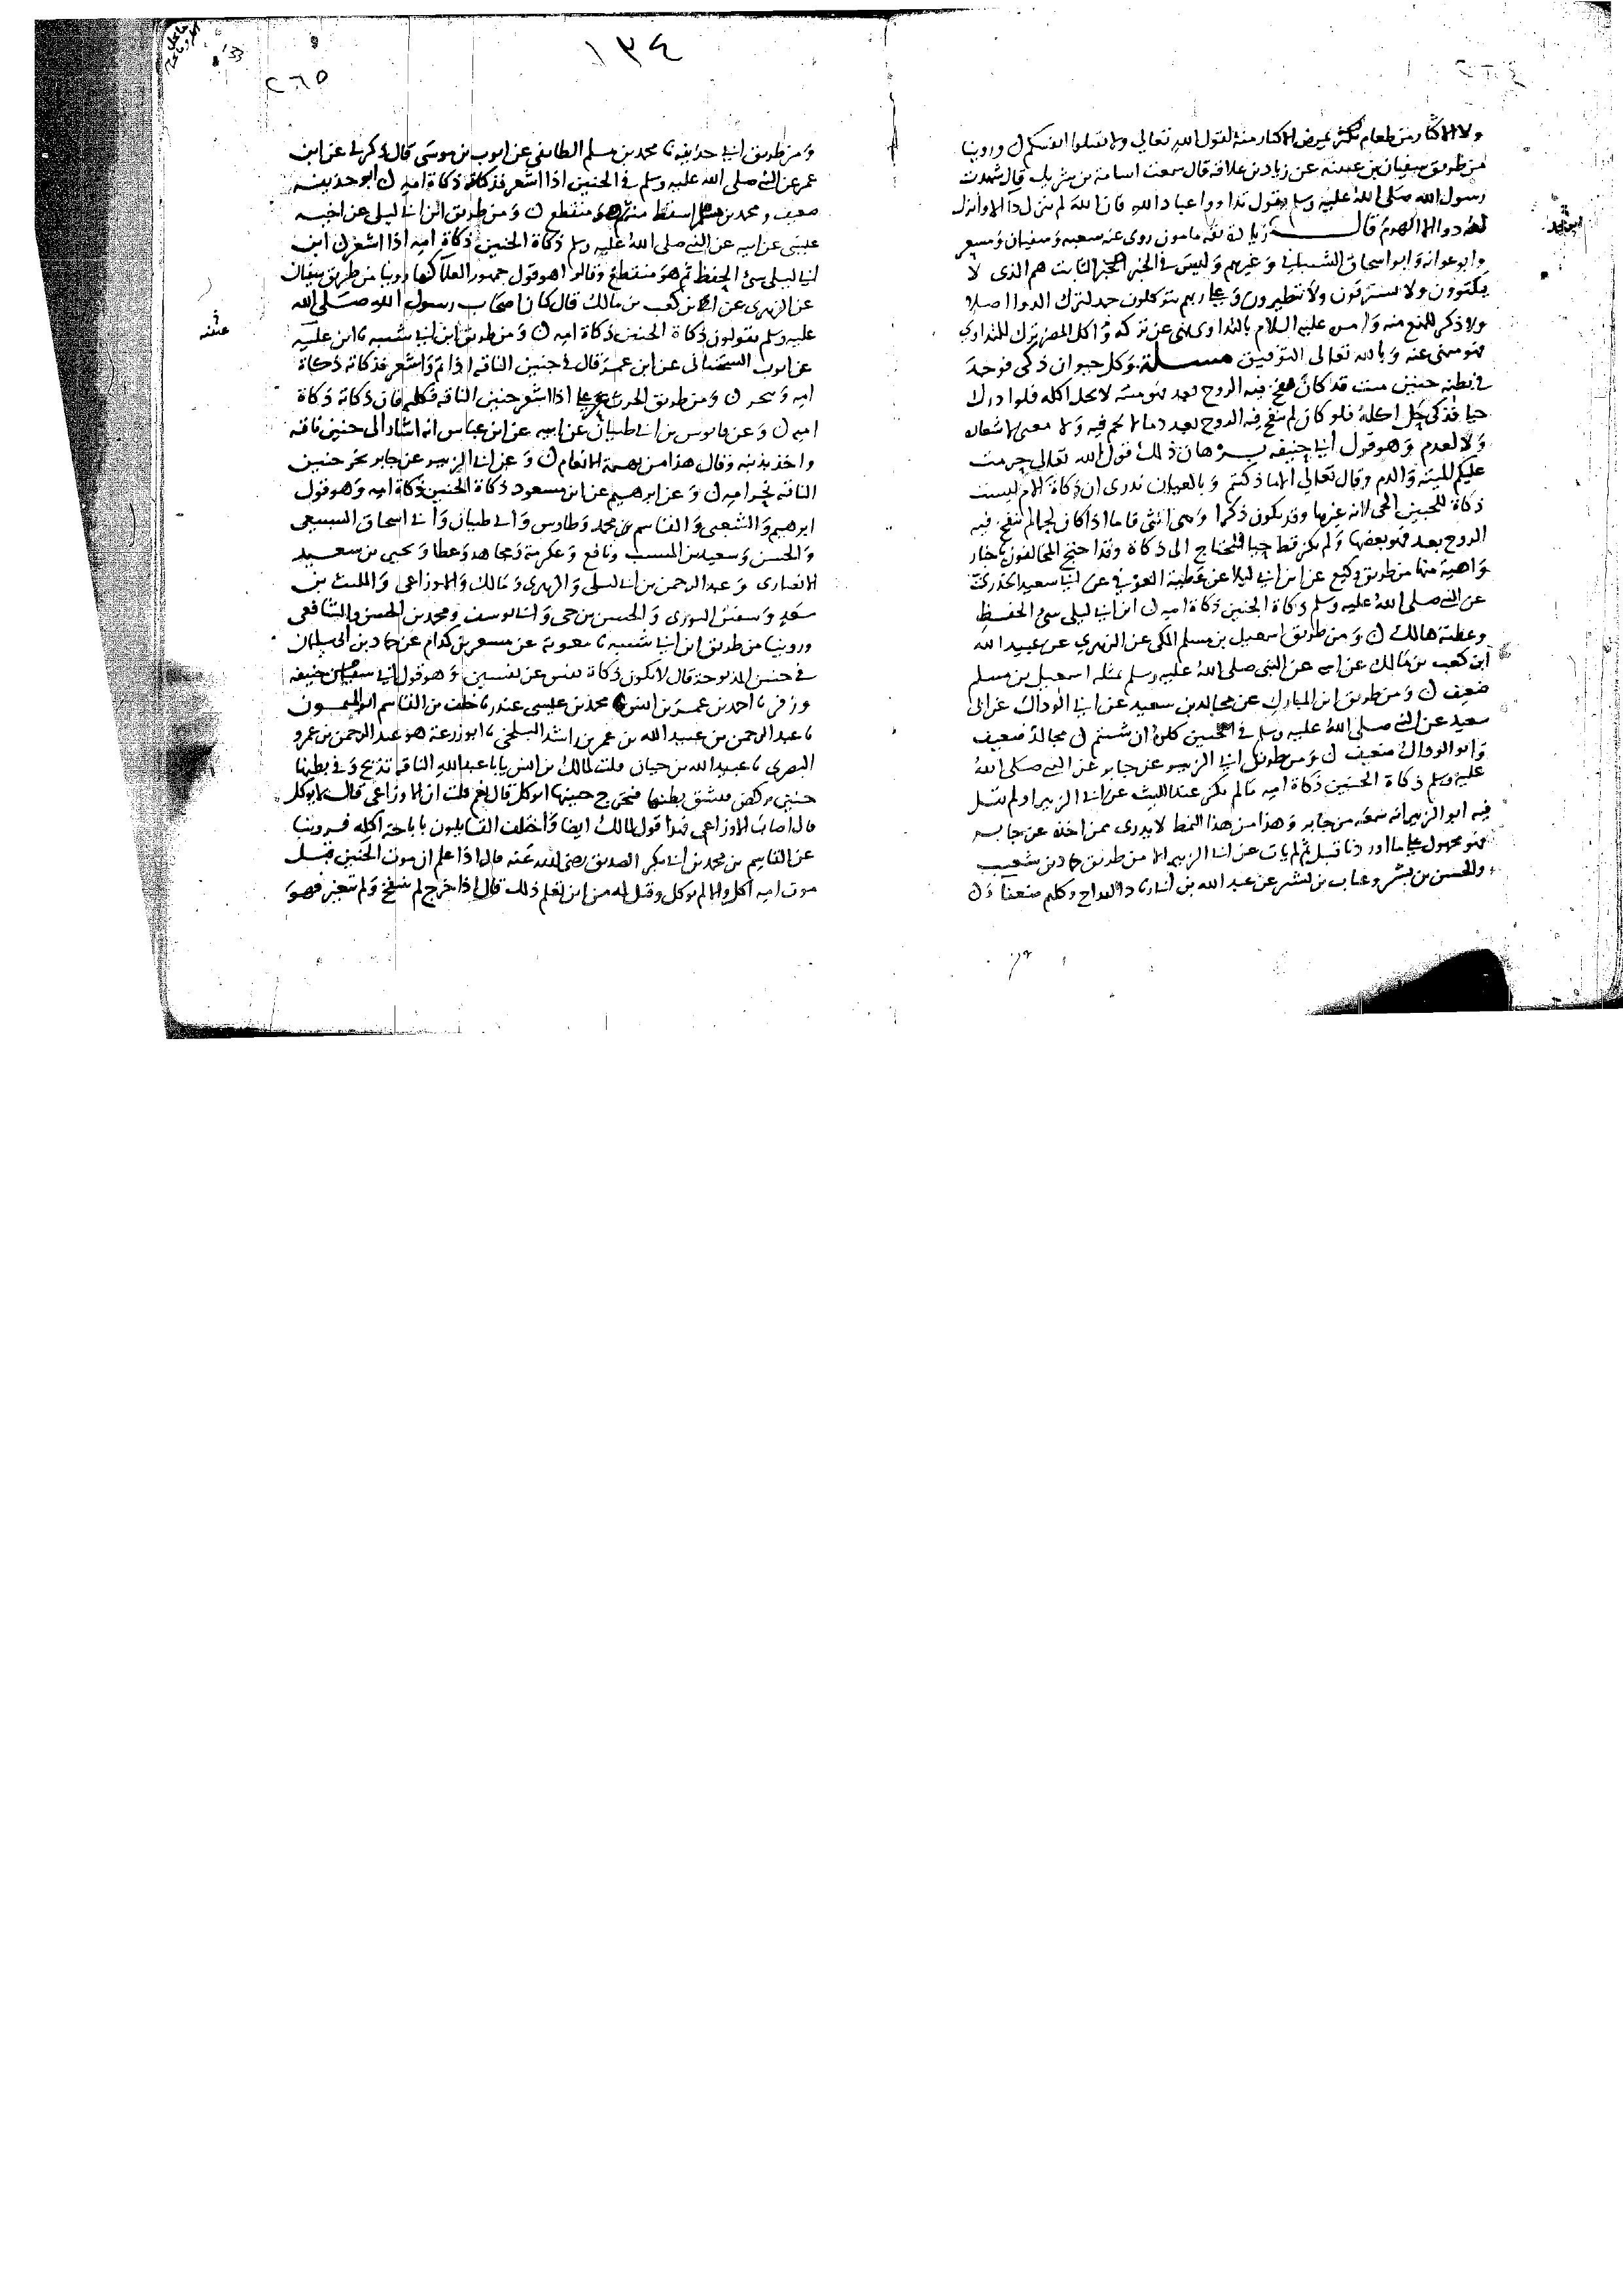 ١٣٤
٢٦٥
ولا الاكثار من طعام يمرض الاكثار منه لقول الله تعالى ولا تقتلوا انفسكم ن وروينا
من طريق سفيان بن عيينة عن زياد بن علاقة قال سمعت اسامة بن شريك قال شهدت
رسول الله صلى الله عليه وسلم يقول تداووا عباد الله فان الله لم ينزل داء الا وانزل
له دوا الا الهرم قال زياد ثقة مامون روى عنه شعبه وسفيان ومسعر
وابو عوانه وابو اسحاق الشيباني وغيرهم وليس في الخبر الثابت هم الذي لا
يكتوون ولا يسترقون ولا يتطيرون وعلى ربهم يتوكلون حمد لترك الدوا اصلا
ولا ذكر للمنع منه وامره عليه السلام بالتداوى نهى عن تركه واكل المضر ترك للتداوي
فهو منهى عنه وبالله تعالى التوفيق مسلة وكل حيوان ذكى فوجد
في بطنه جنين ميت قد كان نفخ فيه الروح بعد فهو ميتة لا يحل اكله فلو ادرك
حيا فذكى حل اكله فلو كان لم ينفخ فيه الروح بعد دما لا لحم فيه ولا معنى لاشعاره
ولا لعدم وهو قول ابي حنيفه برهان ذلك قول الله تعالى حرمت
عليكم الميتة والدم وقال تعالى الا ما ذكيتم وبالعيان ندرى ان ذكاة الام ليست
ذكاة للجنين الحى لانه غيرها وقد يكون ذكرا وهى انثى فاما اذا كان لحما لم تنفخ فيه
الروح بعد فهو بعضها ولم يكن قط حيا فيحتاج الى ذكاة وقد احتج المخالفون باخبار
واهية منها من طريق وكيع عن ابن ابي ليلا عن عطية العوفي عن ابي سعيد الخدرى
عن النبى صلى الله عليه وسلم ذكاة الجنين ذكاة امه ن ابن ابي ليلى سئ الحفظ
وعطية هالك ن ومن طريق اسمعيل بن مسلم المكى عن الزهري عن عبيد الله
ابن كعب بن مالك عن ابيه عن النبي صلى الله عليه وسلم بمثله اسمعيل بن مسلم
ضعيف ن ومن طريق ابن المبارك عن مجالد بن سعيد عن ابي الوداك عن ابى
سعيد عن النبى صلى الله عليه وسلم في الجنين كلوه ان شئتم ن مجالد ضعيف
وابو الوداك ضعيف ن ومن طريق ابي الزبير عن جابر عن النبى صلى الله
عليه وسلم ذكاة الجنين ذكاة امه مالم يكن عند الليث عن ابى الزبير او لم يقل
فيه ابو الزبير انه سمعه من جابر وهذا من هذا النمط لا يدرى ممن اخذه عن جابر
فهو مجهول على ما اوردنا قبل ثم لم يات عن ابى الزبير الا من طريق حماد بن شعيب
والحسن بن بشر وعتاب بن بشير عن عبد الله بن ابى زياد القداح وكلهم ضعفا ن
ومن طريق ابي حذيفه نا محمد بن مسلم الطايفى عن ايوب بن موسى قال ذكر لى عن ابن
عمر عن النبى صلى الله عليه وسلم في الجنين اذا اشعر فذكاته ذكاة امه ن ابو حذيفه
ضعيف ومحمد بن مسلم اسقط منه ثم هو منقطع ن ومن طريق ابن ابى ليلى عن اخيه
عيسى عن ابيه عن النبى صلى الله عليه وسلم ذكاة الجنين ذكاة امه اذا اشعر ن ابن
ابى ليلى سئ الحفظ ثم هو منقطع وقالوا هو قول جمهور العلما كما روينا من طريق سفيان
عن الزهرى عن ابن كعب بن مالك قال كان اصحاب رسول الله صلى الله
عليه وسلم يقولون ذكاة الجنين ذكاة امه ن ومن طريق ابن ابي شيبه نا ابن علية
عن ايوب السختياني عن ابن عمر قال في جنين الناقه اذا تم واشعر فذكاته ذكاة
امه وينحر ن ومن طريق الحرث عن على اذا اشعر جنين الناقه فكله فان ذكاته ذكاة
امه ن وعن قابوس بن ابى ظبيان عن ابيه عن ابن عباس انه اشار الى جنين ناقه
واخذ بذنبه وقال هذا من بهيمة الانعام ن وعن ابى الزبير عن جابر نحر جنين
الناقه نحر امه ن وعن ابرهيم عن ابن مسعود ذكاة الجنين ذكاة امه وهو قول
ابرهيم والشعبى والقاسم بن محمد وطاوس وابى ظبيان وابى اسحاق السبيعى
والحسن وسعيد بن المسيب ونافع وعكرمة ومجاهد وعطا ويحيى بن سعيد
الانصارى وعبد الرحمن بن ابى ليلى والزهرى ومالك والاوزاعى والليث بن
سعد وسفين الثورى والحسن بن حى وابى يوسف ومحمد بن الحسن والشافعى
وروينا من طريق ابن ابي شيبه نا معوية عن مسعر بن كدام عن حماد بن ابى سليمان
في جنين المذبوحة قال لا تكون ذكاة نفس عن نفسين وهو قول ابي حنيفه
وزفر نا احمد بن عمر بن انس نا محمد بن عيسى غندر نا خلف بن القاسم نا ابو الميمون
نا عبد الرحمن بن عبيد الله بن عمر بن راشد البجلى نا ابو زرعة هو عبد الرحمن بن عمرو
البصرى نا عبيد الله بن حيان قلت لمالك بن انس يا با عبد الله الناقه تذبح وفى بطنها
جنين يركض فيشق بطنها فيخرج جنينها ايوكل قال نعم قلت ان الاوزاعى قال لا يوكل
قال اصاب الاوزاعى فهذا قول لمالك ايضا واختلف القايلون باباحة اكله فروينا
عن القاسم بن محمد بن ابى بكر الصديق رضى الله عنه قال اذا علم ان موت الجنين قبل
موت امه اكل والا لم يوكل وقيل له من اين يعلم ذلك قال اذا خرج لم ينتفخ ولم يتغير فهو